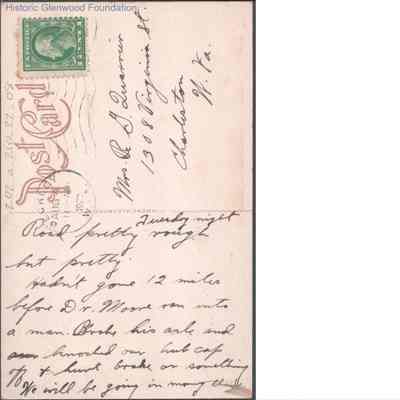 Historic Glenwood Foundation
Post Card
Mrs. R. G. Quarrier
1308 Virginia St
Charleston
W. Va.
Tuesday night
Road pretty rough
but pretty.
Hadn't gone 12 miles
before Dr. Moore ran into
a man. Broke his axle and
knocked our hub cap
off & hurt brake or something
We will be going in morng